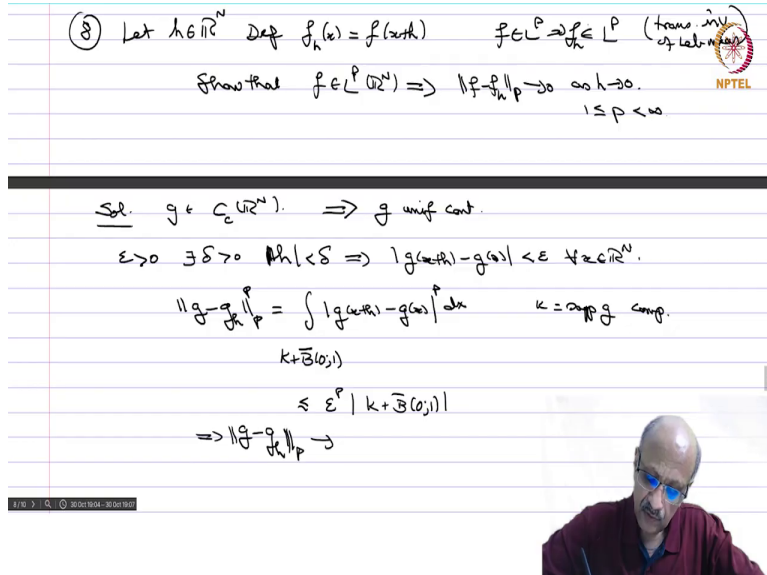 ⑧ Let h∈ℝᴺ Def fₕ(x) = f(x+h) f∈Lᵖ ⇒ fₕ∈ Lᵖ (trans. inv
of Leb. meas)
NPTEL
Show that f∈Lᵖ(ℝᴺ) ⟹ ‖f-fₕ‖ₚ → 0 as h→0.
1 ≤ p < ∞
Sol. g ∈ C_c(ℝᴺ). ⟹ g unif cont.
ε>0 ∃δ>0 |h|<δ ⟹ |g(x+h) - g(x)| < ε ∀x∈ℝᴺ.
‖g-gₕ‖ₚᵖ = ∫ |g(x+h) - g(x)|ᵖ dx K = supp g comp.
K+B̄(0;1)
≤ εᵖ | K+B̄(0;1)|
⟹ ‖g-gₕ‖ₚ →
8/10 30 Oct 19:04 - 30 Oct 19:07